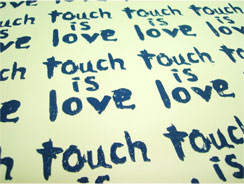 touch touch touch
is is is
love love love
touch touch touch
is is is
love love love
touch touch touch
is is
love love